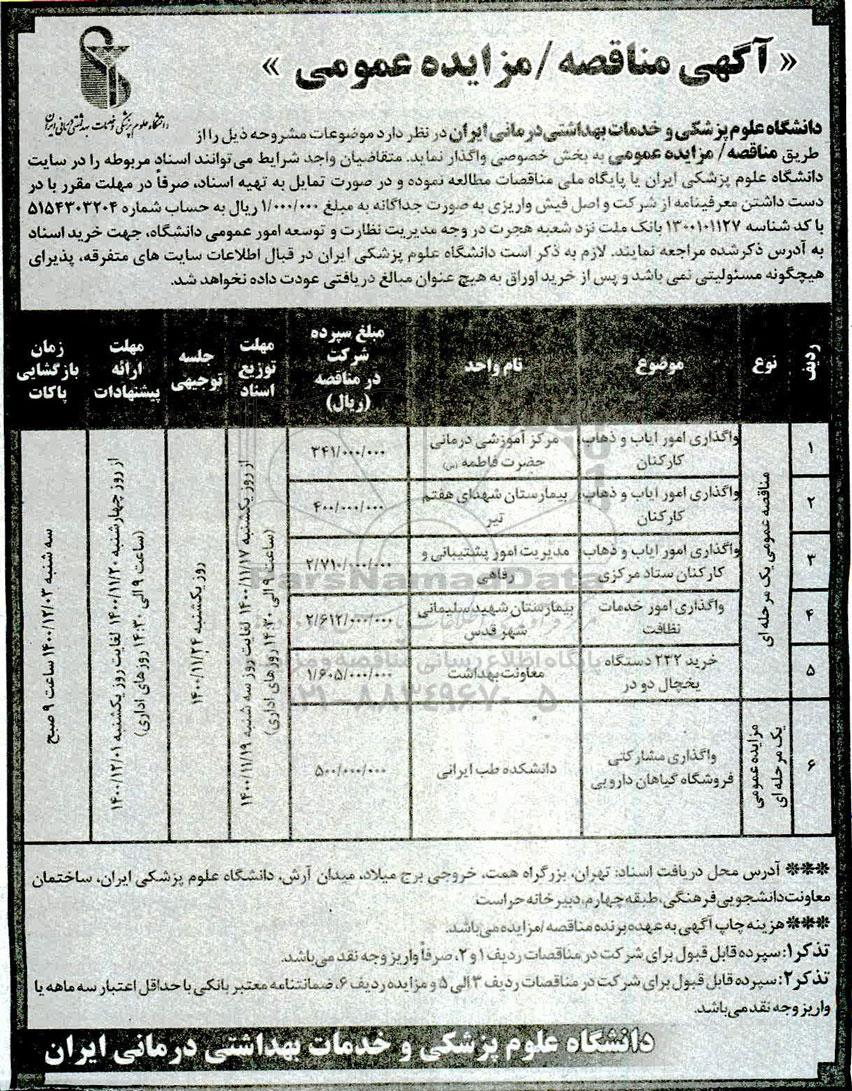 « آگهی مناقصه/مزایده عمومی »
دانشگاه علوم پزشکی و خدمات بهداشتی درمانی ایران
دانشگاه علوم پزشکی و خدمات بهداشتی درمانی ایران در نظر دارد موضوعات مشروحه ذیل را از
طریق مناقصه/ مزایده عمومی به بخش خصوصی واگذار نماید. متقاضیان واجد شرایط می توانند اسناد مربوطه را در سایت
دانشگاه علوم پزشکی ایران یا پایگاه ملی مناقصات مطالعه نموده و در صورت تمایل به تهیه اسناد، صرفاً در مهلت مقرر با در
دست داشتن معرفینامه از شرکت و اصل فیش واریزی به صورت جداگانه به مبلغ ۱/۰۰۰/۰۰۰ ریال به حساب شماره ۵۱۵۴۳۰۳۲۰۴
با کد شناسه ۱۳۰۰۱۰۱۱۲۷ بانک ملت نزد شعبه هجرت در وجه مدیریت نظارت و توسعه امور عمومی دانشگاه، جهت خرید اسناد
به آدرس ذکرشده مراجعه نمایند. لازم به ذکر است دانشگاه علوم پزشکی ایران در قبال اطلاعات سایت های متفرقه، پذیرای
هیچگونه مسئولیتی نمی باشد و پس از خرید اوراق به هیچ عنوان مبالغ دریافتی عودت داده نخواهد شد.
ردیف
نوع
موضوع
نام واحد
مبلغ سپرده
شرکت
در مناقصه
(ریال)
مهلت
توزیع
اسناد
جلسه
توجیهی
مهلت
ارائه
پیشنهادات
زمان
بازگشایی
پاکات
مناقصه عمومی یک مرحله ای
۱
واگذاری امور ایاب و ذهاب
کارکنان
مرکز آموزشی درمانی
حضرت فاطمه (س)
۳۴۱/۰۰۰/۰۰۰
۲
واگذاری امور ایاب و ذهاب
کارکنان
بیمارستان شهدای هفتم
تیر
۴۰۰/۰۰۰/۰۰۰
۳
واگذاری امور ایاب و ذهاب
کارکنان ستاد مرکزی
مدیریت امور پشتیبانی و
رفاهی
۲/۷۱۰/۰۰۰/۰۰۰
۴
واگذاری امور خدمات
نظافت
بیمارستان شهید سلیمانی
شهر قدس
۲/۶۱۲/۰۰۰/۰۰۰
۵
خرید ۲۲۲ دستگاه
یخچال دو در
معاونت بهداشت
۱/۶۰۵/۰۰۰/۰۰۰
مزایده عمومی
یک مرحله ای
۶
واگذاری مشارکتی
فروشگاه گیاهان دارویی
دانشکده طب ایرانی
۵۰۰/۰۰۰/۰۰۰
از روز یکشنبه ۱۴۰۰/۱۱/۱۷ لغایت روز سه شنبه ۱۴۰۰/۱۱/۱۹
(ساعت ۹ الی ۱۴:۳۰ روزهای اداری)
روز یکشنبه ۱۴۰۰/۱۱/۲۴
از روز چهارشنبه ۱۴۰۰/۱۱/۲۰ لغایت روز یکشنبه ۱۴۰۰/۱۲/۰۱
(ساعت ۹ الی ۱۴:۳۰ روزهای اداری)
سه شنبه ۱۴۰۰/۱۲/۰۳ ساعت ۹ صبح
ParsNamadData
پایگاه اطلاع رسانی مناقصه و مزایده
۰۲۱-۸۸۳۴۹۶۷۰-۵
*** آدرس محل دریافت اسناد: تهران، بزرگراه همت، خروجی برج میلاد، میدان آرش، دانشگاه علوم پزشکی ایران، ساختمان
معاونت دانشجویی فرهنگی، طبقه چهارم، دبیرخانه حراست
*** هزینه چاپ آگهی به عهده برنده مناقصه/مزایده می باشد.
تذکر۱: سپرده قابل قبول برای شرکت در مناقصات ردیف ۱ و ۲، صرفاً واریز وجه نقد می باشد.
تذکر۲: سپرده قابل قبول برای شرکت در مناقصات ردیف ۳ الی ۵ و مزایده ردیف ۶، ضمانتنامه معتبر بانکی با حداقل اعتبار سه ماهه یا
واریز وجه نقد می باشد.
دانشگاه علوم پزشکی و خدمات بهداشتی درمانی ایران